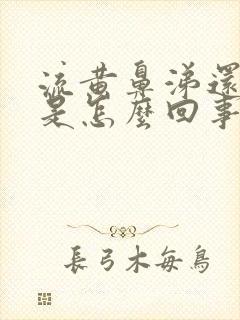 流黄鼻涕還
是怎麼回事
長弓木每鳥